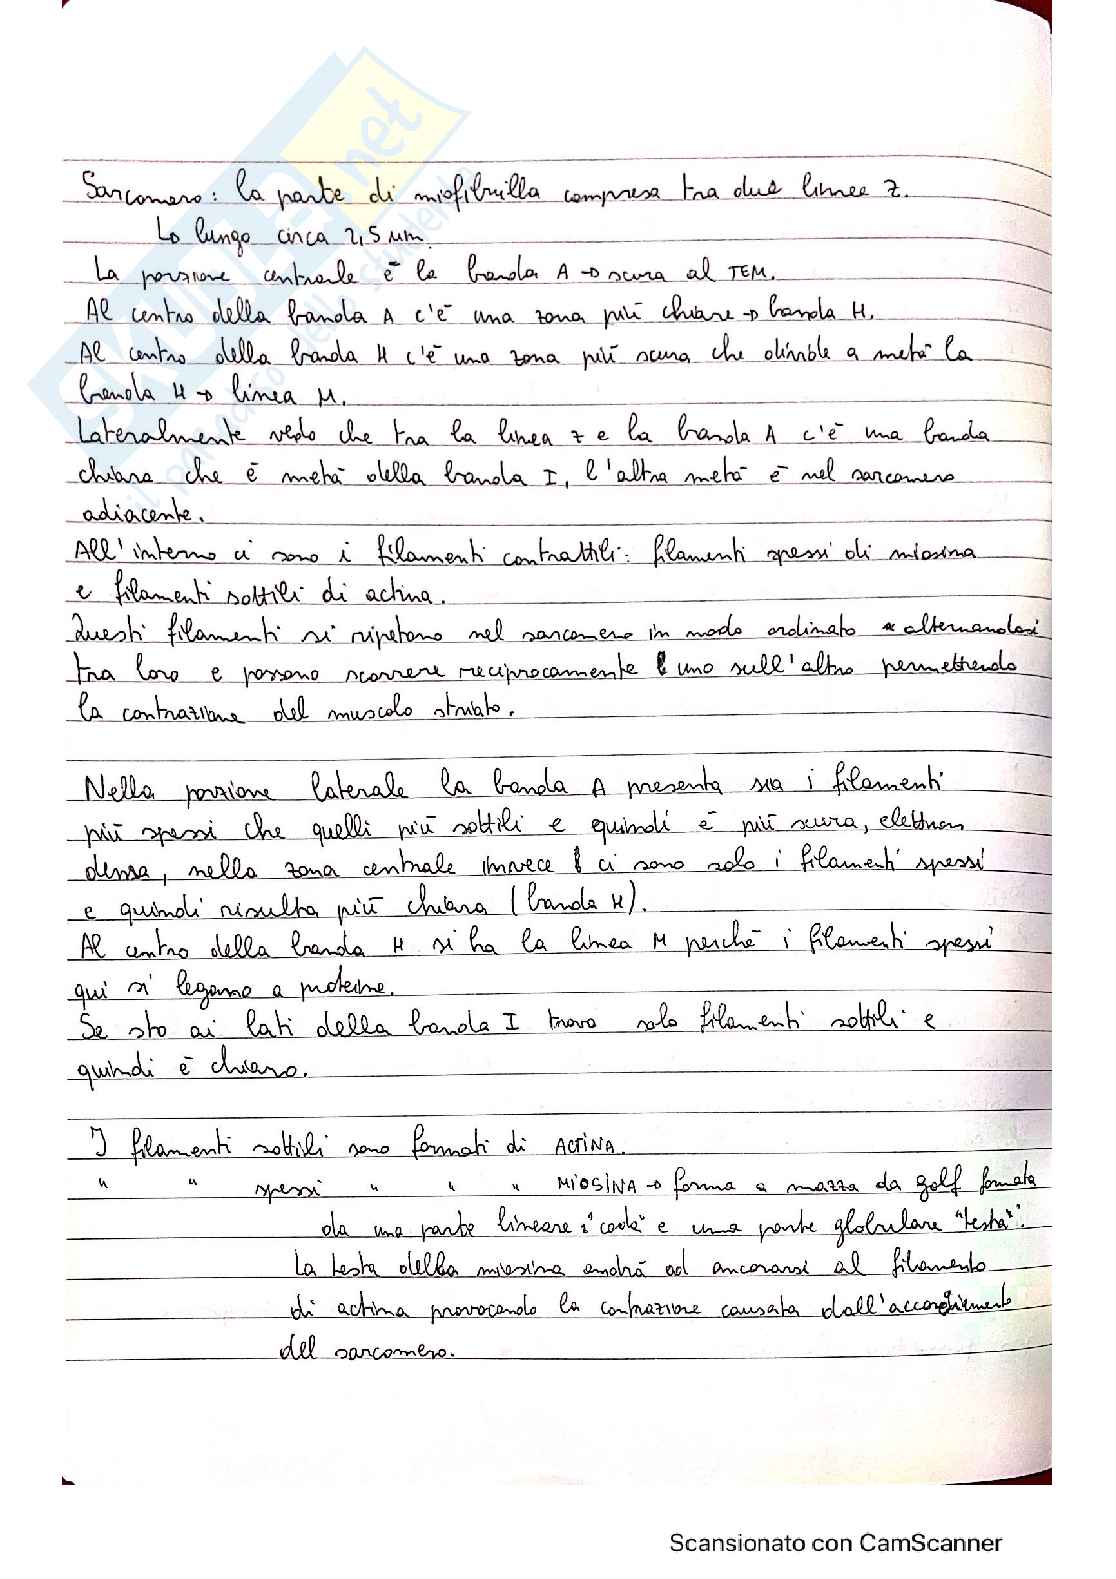 Sarcomero: la parte di miofibrilla compresa tra due linee Z.
↳ lungo circa 2,5 µm.
La porzione centrale è la banda A → scura al TEM.
Al centro della banda A c'è una zona più chiara → banda H.
Al centro della banda H c'è una zona più scura che divide a metà la
banda H → linea M.
Lateralmente vedo che tra la linea Z e la banda A c'è una banda
chiara che è metà della banda I, l'altra metà è nel sarcomero
adiacente.
All'interno ci sono i filamenti contrattili: filamenti spessi di miosina
e filamenti sottili di actina.
Questi filamenti si ripetono nel sarcomero in modo ordinato alternandosi
tra loro e possono scorrere reciprocamente l'uno sull'altro permettendo
la contrazione del muscolo striato.
Nella porzione laterale la banda A presenta sia i filamenti
più spessi che quelli più sottili e quindi è più scura, elettron
densa, nella zona centrale invece ci sono solo i filamenti spessi
e quindi risulta più chiara (banda H).
Al centro della banda H si ha la linea M perchè i filamenti spessi
qui si legano a proteine.
Se sto ai lati della banda I trovo solo filamenti sottili e
quindi è chiaro.
I filamenti sottili sono formati di ACTINA.
" " spessi " " " MIOSINA → forma a mazza da golf formata
da una parte lineare "coda" e una parte globulare "testa".
La testa della miosina andrà ad ancorarsi al filamento
di actina provocando la contrazione causata dall'accorciamento
del sarcomero.
SKUOLA.net
il paradiso dello studente
Scansionato con CamScanner